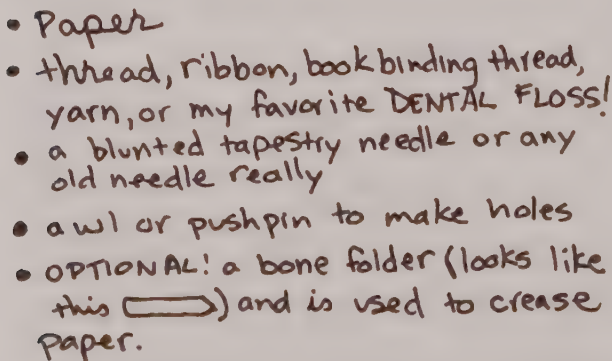 • Paper
• thread, ribbon, bookbinding thread,
yarn, or my favorite DENTAL FLOSS!
• a blunted tapestry needle or any
old needle really
• awl or pushpin to make holes
• OPTIONAL! a bone folder (looks like
this ) and is used to crease
paper.